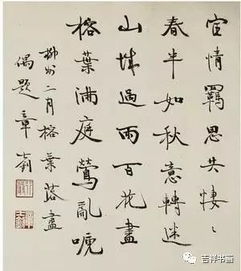 宦情羈思共悽〻
春半如秋意轉迷
山城過雨百花盡
榕葉滿庭鶯亂嗁
柳州二月榕葉落盡
偶題 章
吉祥书画